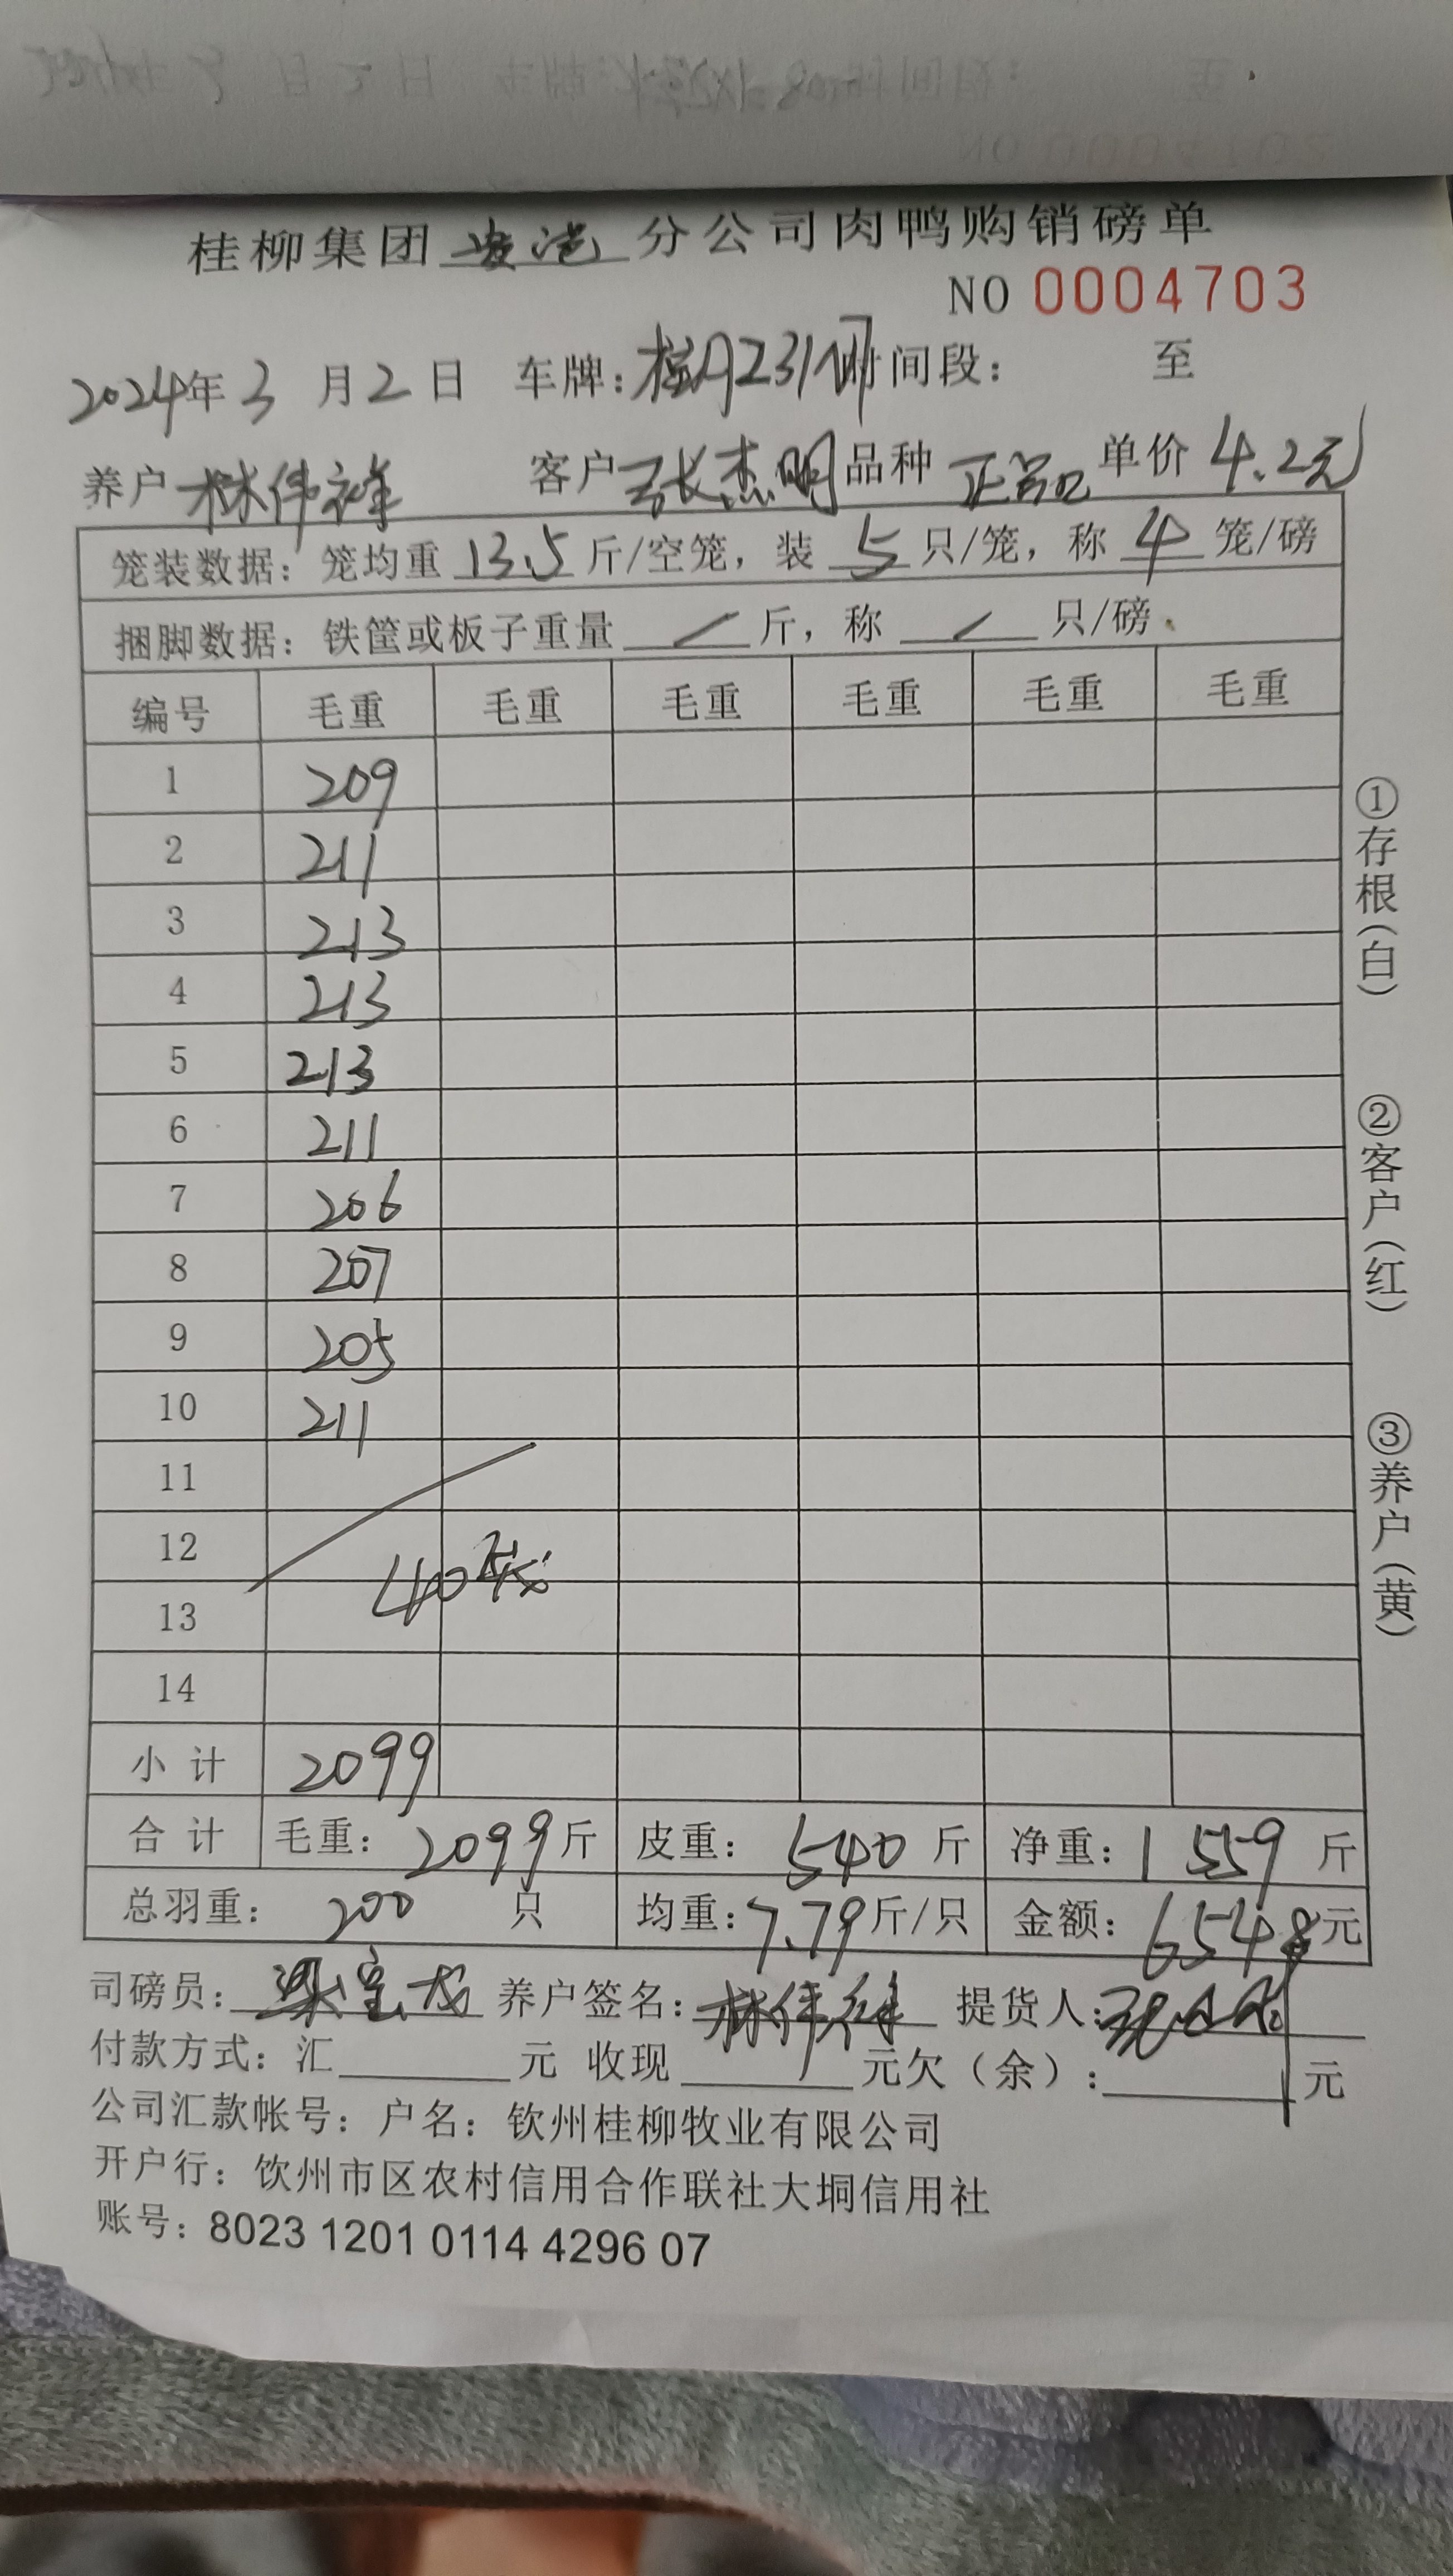 桂柳集团 分公司肉鸭购销磅单
NO 0004703
2024年3月2日 车牌: 时间段: 至
养户 林伟祥 客户 张杰明 品种 正品 单价 4.2元
笼装数据: 笼均重 13.5 斤/空笼, 装 5 只/笼, 称 4 笼/磅
捆脚数据: 铁筐或板子重量 / 斤, 称 / 只/磅
编号 毛重 毛重 毛重 毛重 毛重 毛重
1 209
2 211
3 213
4 213
5 213
6 211
7 206
8 207
9 205
10 211
11
12
40
13
14
小计 2099
合计 毛重: 2099斤 皮重: 540斤 净重: 1559斤
总羽重: 200 只 均重: 7.79斤/只 金额: 6548元
司磅员: 养户签名: 林伟祥 提货人:
付款方式: 汇 元 收现 元欠(余): 元
公司汇款帐号: 户名: 钦州桂柳牧业有限公司
开户行: 饮州市区农村信用合作联社大垌信用社
账号: 8023 1201 0114 4296 07
①存根(白)
②客户(红)
③养户(黄)